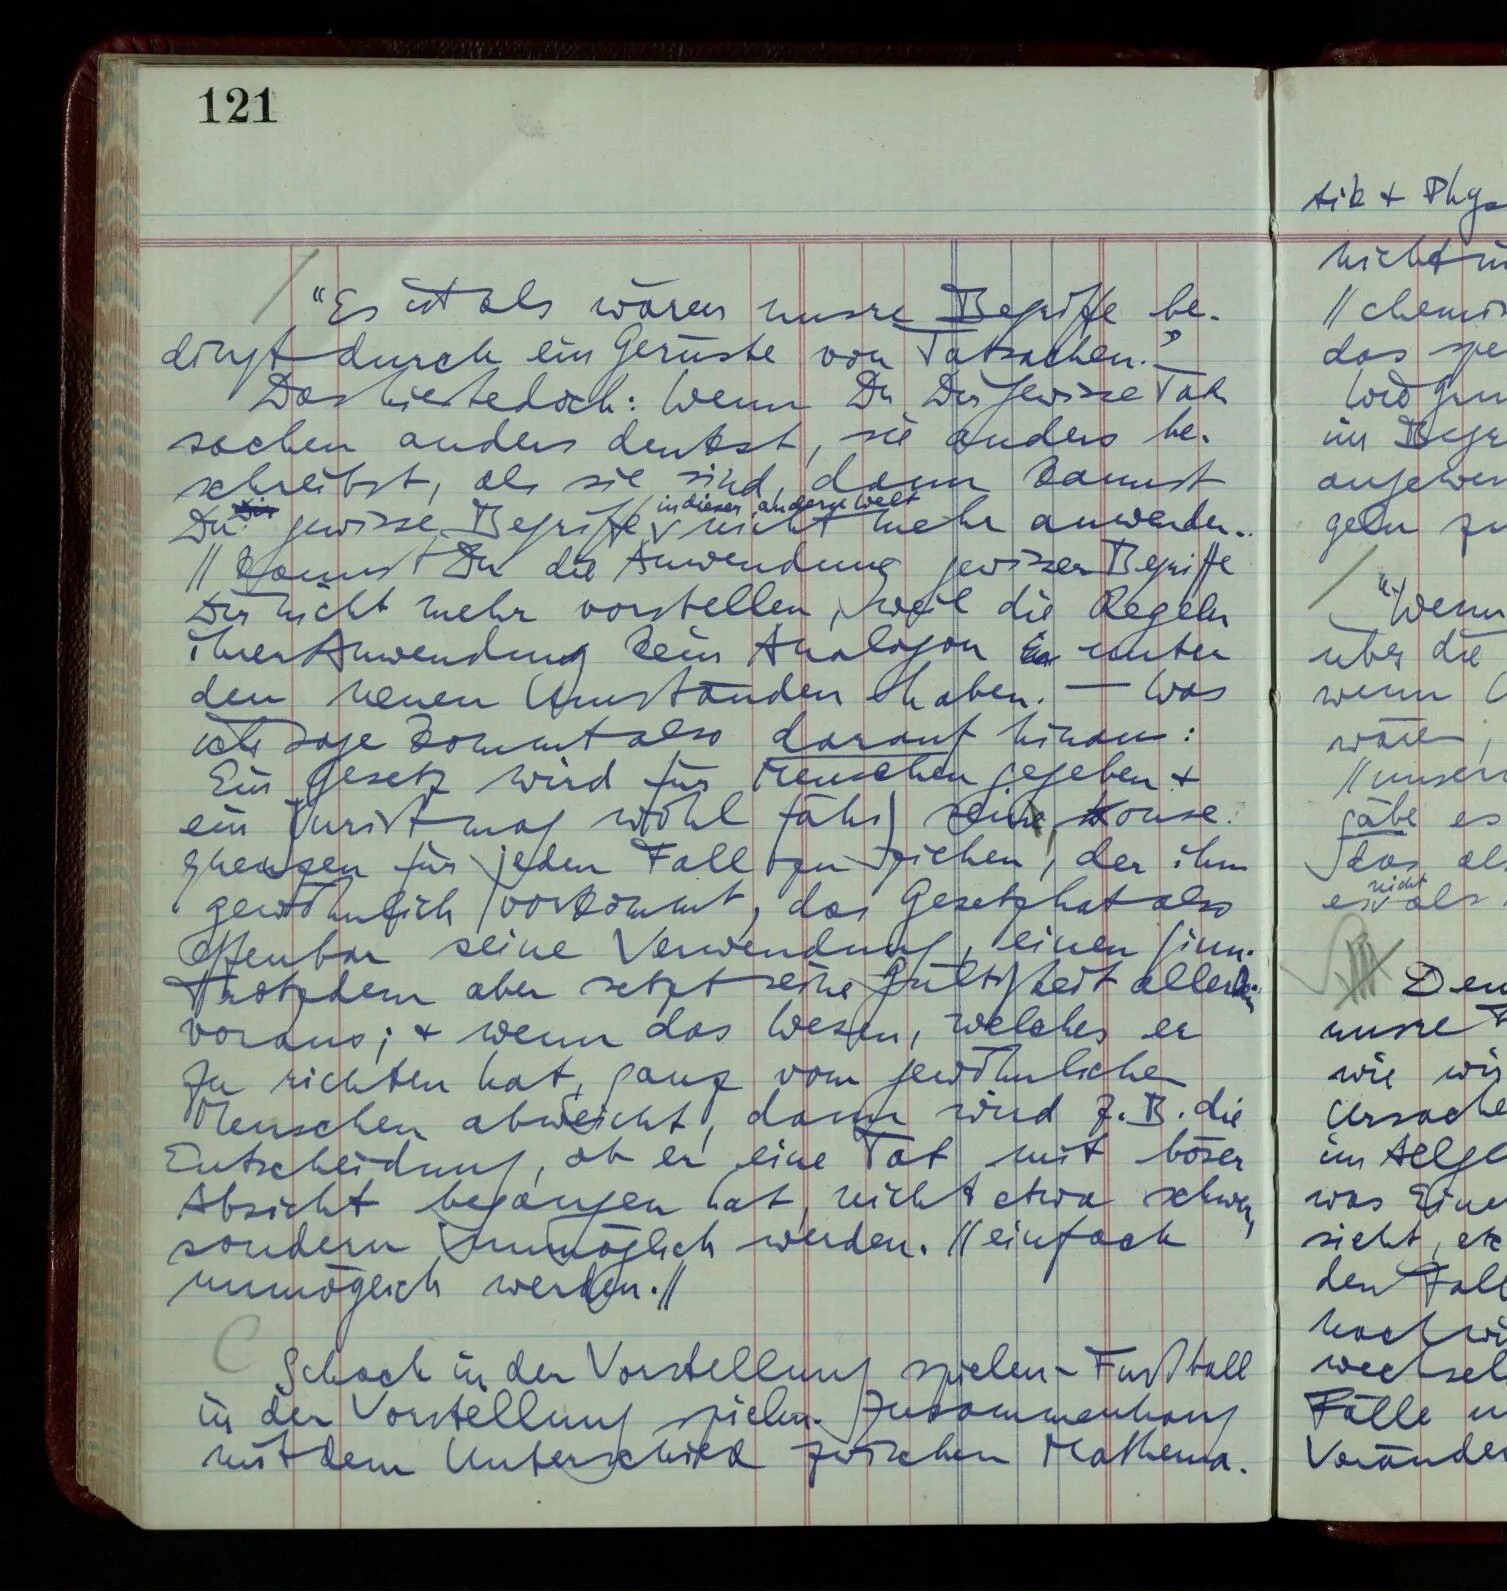 121
"Es ist als wären unsre Begriffe be-
dingt durch ein Gerüste von Tatsachen."
Das hieße doch: Wenn Du Dir gewisse Tat-
sachen anders denkst, sie anders be-
schreibst, als sie sind, dann kannst
in dieser andern Welt
Du gewisse Begriffe nicht mehr anwenden.
// kannst Du die Anwendung gewisser Begriffe
Dir nicht mehr vorstellen, weil die Regeln
ihrer Anwendung kein Analogon unter
den neuen Umständen haben. — Was
ich sage kommt also darauf hinaus:
Ein Gesetz wird für Menschen gegeben +
ein Jurist mag wohl fähig sein, Konse-
quenzen für jeden Fall zu ziehen, der ihm
gewöhnlich vorkommt, das Gesetz hat also
offenbar seine Verwendung, einen Sinn.
Trotzdem aber setzt seine Gültigkeit allerlei
voraus; + wenn das Wesen, welches er
zu richten hat, ganz vom gewöhnlichen
Menschen abweicht, dann wird z.B. die
Entscheidung, ob er eine Tat mit böser
Absicht begangen hat, nicht etwa schwer,
sondern unmöglich werden. // einfach
unmöglich werden. //
C
Schach in der Vorstellung spielen – Fußball
in der Vorstellung spielen. Zusammenhang
mit dem Unterschied zwischen Mathema-
tik + Phys
nicht
// chemi
das spe
im Begr
angewen
geln zu
"Wenn
über die
wenn
wäre,
// unser
gäbe es
das al
nicht
als
Den
unsre
wie wir
Ursache
im Allge
was Eine
sicht, etc
den Fall
noch wi
wechsel
Fälle
Veränder